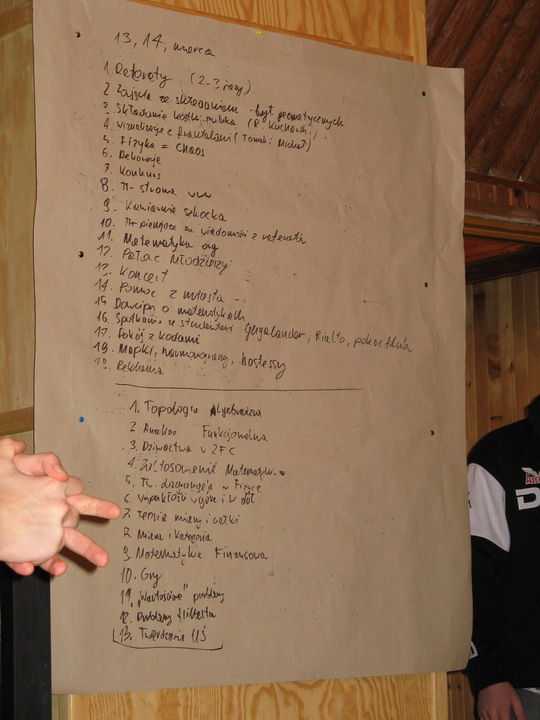 13, 14, marca
1. Referaty (2-3 razy)
2 Zajęcia ze składaniem brył geometrycznych
3. Składanie kostki rubika (R. Kuchowski)
4. Wizualizacje z fraktalami (Tomek i Michał)
5. Fizyka = CHAOS
6. Dekoracje
7. Konkurs
8. TI- strona www
9. Kawiarnia szkocka
10. TI- pieniądze za wiadomości z referatu
11. Matematyka org
12. Pałac Młodzieży
13. Koncert
14. Pomoc z miasta -
15 Dowcipy o matematykach
16. Spotkania ze studentami Gegalander, Rialto, pokaz filmu
17. Pokój z kodami
18. Mapki, harmonogramy, hostessy
19. Reklama
1. Topologia Algebraiczna
2 Analiza Funkcjonalna
3. Dziwactwa w ZFC
4. Zastosowanie Matematyki
5. Tw. w Fizyce
6. Wypukłość w górę i w dół
7. Teoria miary i całki
8. Miara i Kategoria
9. Matematyka Finansowa
10. Gry
11. "Wartościowe" problemy
12. Problemy Hilberta
13. Twierdzenie UŚ